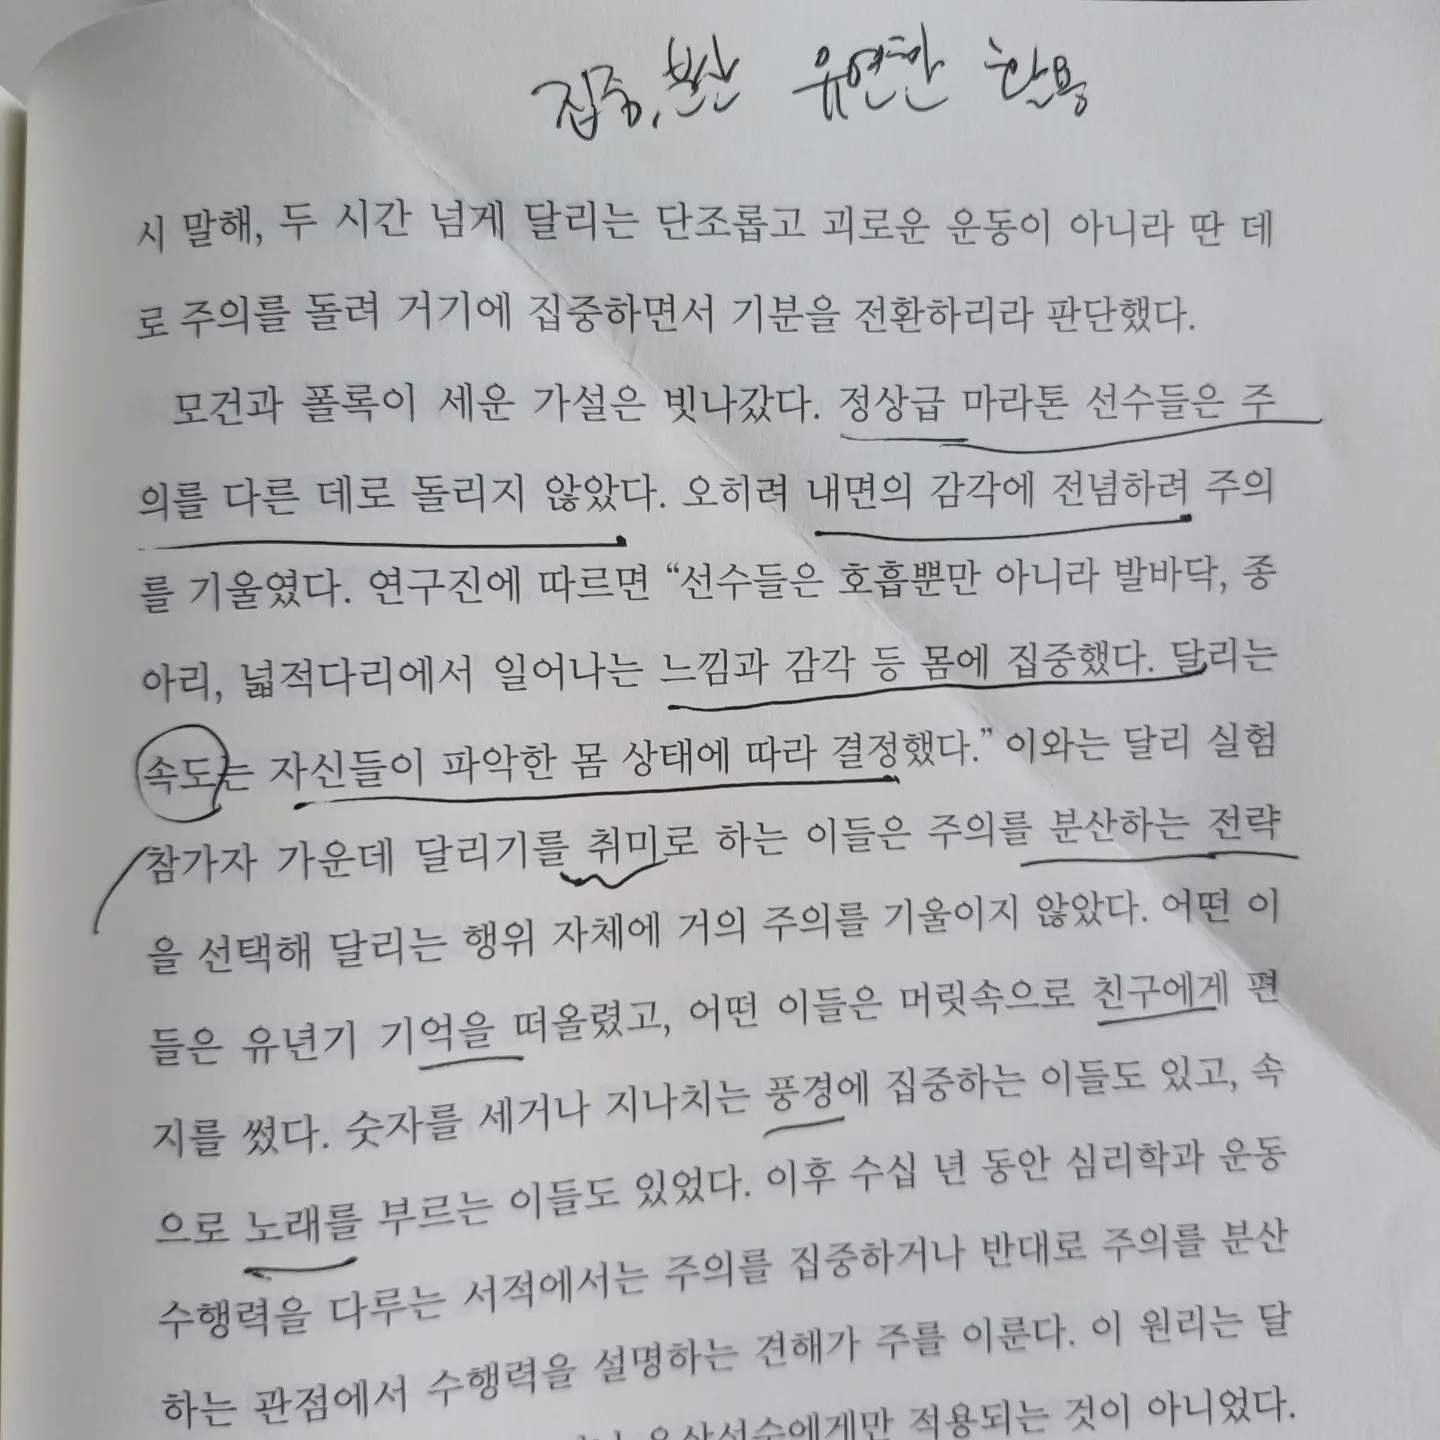 집중, 분산 유연한 활용
시 말해, 두 시간 넘게 달리는 단조롭고 괴로운 운동이 아니라 딴 데
로 주의를 돌려 거기에 집중하면서 기분을 전환하리라 판단했다.
모건과 폴록이 세운 가설은 빗나갔다. 정상급 마라톤 선수들은 주
의를 다른 데로 돌리지 않았다. 오히려 내면의 감각에 전념하려 주의
를 기울였다. 연구진에 따르면 “선수들은 호흡뿐만 아니라 발바닥, 종
아리, 넓적다리에서 일어나는 느낌과 감각 등 몸에 집중했다. 달리는
속도는 자신들이 파악한 몸 상태에 따라 결정했다.” 이와는 달리 실험
참가자 가운데 달리기를 취미로 하는 이들은 주의를 분산하는 전략
을 선택해 달리는 행위 자체에 거의 주의를 기울이지 않았다. 어떤 이
들은 유년기 기억을 떠올렸고, 어떤 이들은 머릿속으로 친구에게 편
지를 썼다. 숫자를 세거나 지나치는 풍경에 집중하는 이들도 있고, 속
으로 노래를 부르는 이들도 있었다. 이후 수십 년 동안 심리학과 운동
수행력을 다루는 서적에서는 주의를 집중하거나 반대로 주의를 분산
하는 관점에서 수행력을 설명하는 견해가 주를 이룬다. 이 원리는 달
적용되는 것이 아니었다.